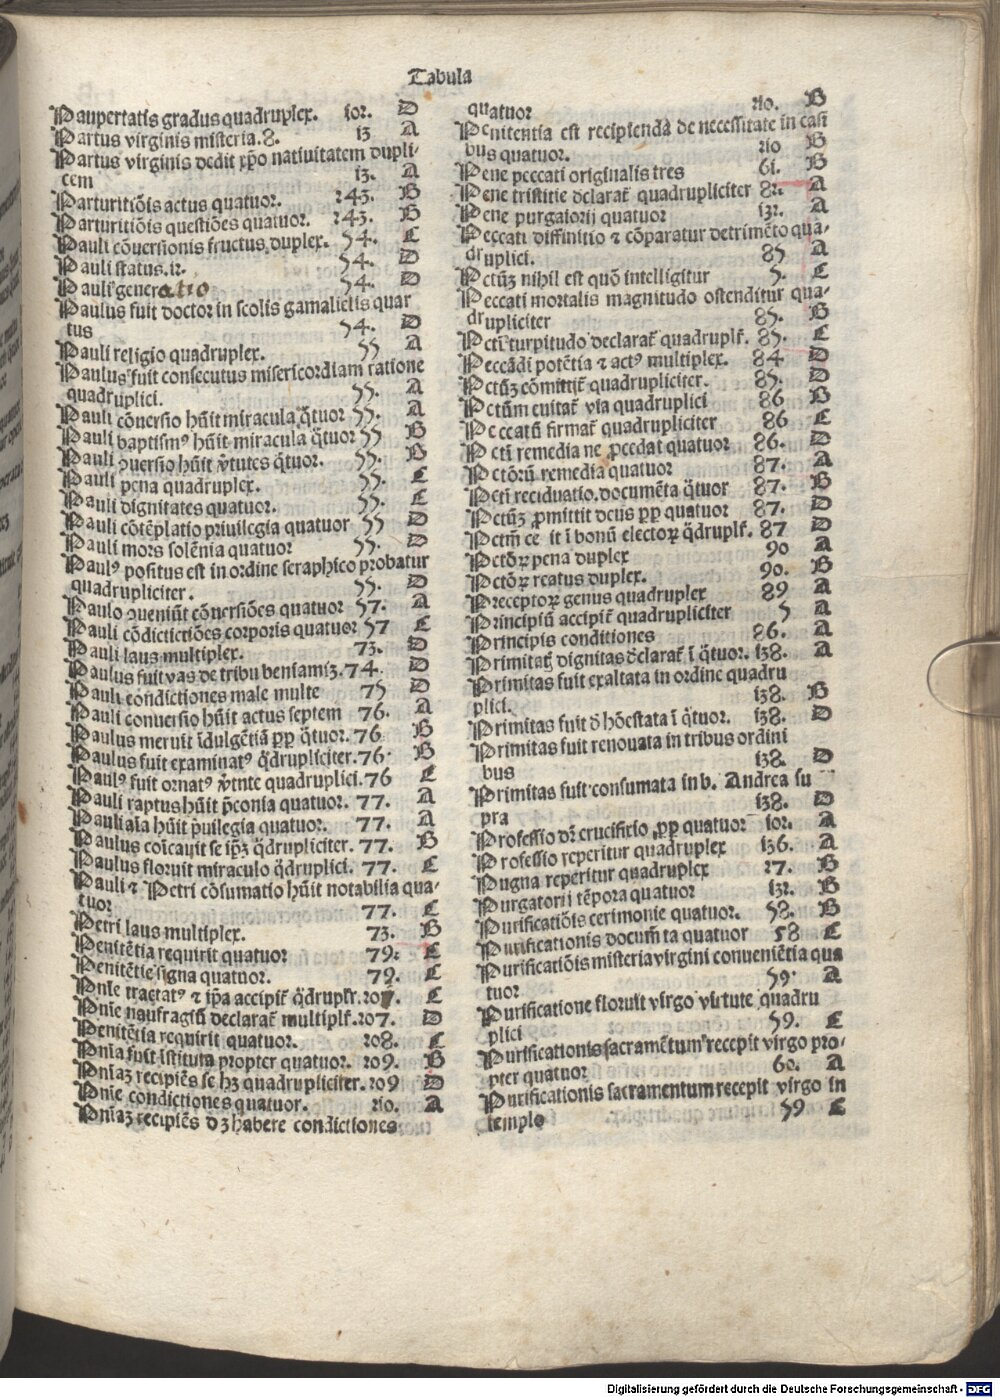 Tabula
Paupertatis gradus quadruplex. ior. D
Partus virginis misteria.8. i3 A
Partus virginis dedit xp̄o natiuitatem dupli-
cem i3. A
Parturitiōis actus quatuor. 243. B
Parturitiōis questiōes quatuor. 243. B
Pauli cōuersionis fructus duplex. 54. C
Pauli status.i2. 54. D
Pauli generatio 54. D
Paulus fuit doctor in scolis gamalielis quar
tus 54. D
Pauli religio quadruplex. 55 A
Paulus fuit consecutus misericordiam ratione
quadruplici. 55. A
Pauli cōnersio hūit miracula q̄tuor 55. A
Pauli baptismꝰ hūit miracula q̄tuor 55 B
Pauli ꝯuersio hūit v̄tutes q̄tuor. 55. B
Pauli pena quadruplex. 55. C
Pauli dignitates quatuor. 55. C
Pauli cōtēplatio priuilegia quatuor 55 D
Pauli mors solēnia quatuor 55. D
Paulꝰ positus est in ordine seraphico probatur
quadrupliciter. 55. D
Paulo ꝯueniūt cōuersiōes quatuor 57. A
Pauli cōdictictiōes corporis quatuor 57 C
Pauli laus multiplex. 73. D
Paulus fuit vas de tribu beniamiꝫ. 74. D
Pauli condictiones male multe 75 D
Pauli conuersio hūit actus septem 76. A
Paulus meruit īdulgētiā ꝓp q̄tuor. 76 B
Paulus fuit examinatꝰ q̄drupliciter. 76. B
Paulꝰ fuit ornatꝰ v̄tute quadruplici. 76 C
Pauli raptus hūit p̄conia quatuor. 77. A
Pauli aīa hūit p̄uilegia quatuor. 77. A
Paulus coīcauit se ip̄ꝫ q̄drupliciter. 77. B
Paulus floruit miraculo q̄druplici. 77. C
Pauli ⁊ Petri cōsumatio hūit notabilia qua-
tuor 77. C
Petri laus multiplex. 73. B
Penitētia requirit quatuor 79. C
Penitētie signa quatuor. 79. C
Pnīe tractatꝰ ⁊ ip̄a accipit᷑ q̄druplr̄. 207. C
Pnīe naufragiū declarat᷑ multiplr̄. 207. D
Penitētia requirit quatuor. 208. C
Pnīa fuit īstituta propter quatuor. 209. B
Pnīaꝫ recipiēs se hꝫ quadrupliciter. 209 D
Pnīe condictiones quatuor. 2io. A
Pnīaꝫ recipiēs dꝫ habere condictiones
quatuor 2io. B
Penitentia est recipienda de necessitate in casi
bus quatuor. 2io B
Pene peccati originalis tres 6i. B
Pene tristitie dclarat᷑ quadrupliciter 82. A
Pene purgatorij quatuor i32. A
Peccati diffinitio ⁊ cōparatur detrimēto qua-
druplici. 85 A
Pctūꝫ nihil est quō intelligitur 5. C
Peccati mortalis magnitudo ostenditur qua-
drupliciter 85. B
Pctī turpitudo declarat᷑ quadruplr̄. 85. C
Peccādi potētia ⁊ actꝰ multiplex. 84. D
Pctūꝫ cōmittit᷑ quadrupliciter. 85. D
Pctūm euitat᷑ via quadruplici 86 B
Peccatū firmat᷑ quadrupliciter 86 C
Pctī remedia ne ꝓcedat quatuor 86. D
Pctōrū remedia quatuor 87. A
Pctī reciduatio. documēta q̄tuor 87. B
Pctūꝫ ꝓmittit deus ꝓp quatuor 87. D
Pctm̄ ce it ī bonū electoꝝ q̄druplr̄. 87 D
Pctōꝝ pena duplex 90 A
Pctōꝝ reatus duplex. 90. B
Preceptoꝝ genus quadruplex 89 A
Principiū accipit᷑ quadrupliciter 5 A
Principis conditiones 86. A
Primitatꝫ dignitas dclarat᷑ ī q̄tuor. i38. A
Primitas fuit exaltata in ordine quadru
plici. i38. B
Primitas fuit dhōestata ī q̄tuor. i38. D
Primitas fuit renouata in tribus ordini
bus i38. D
Primitas fuit consumata in b. Andrea su
pra i38. D
Professio dr̄ crucifixio ꝓp quatuor ior. A
Professio reperitur quadruplex i36. A
Pugna reperitur quadruplex 27. B
Purgatorij tēpora quatuor i32. B
Purificatiōis cerimonie quatuor. 58. B
Purificationis documēta quatuor 58 C
Purificatiōis misteria virgini conueniētia qua
tuor 59. A
Purificatione floruit virgo virtute quadru
plici 59. C
Purificationis sacramētum recepit virgo pro-
pter quatuor 60. A
Purificationis sacramentum recepit virgo in
templo 59 C
Digitalisierung gefördert durch die Deutsche Forschungsgemeinschaft - DFG